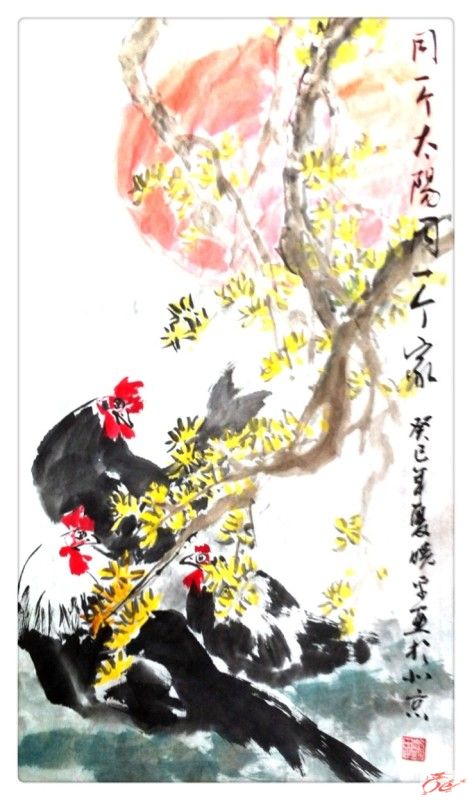 同一个太陽同一个家
癸巳年夏晓宇画於北京